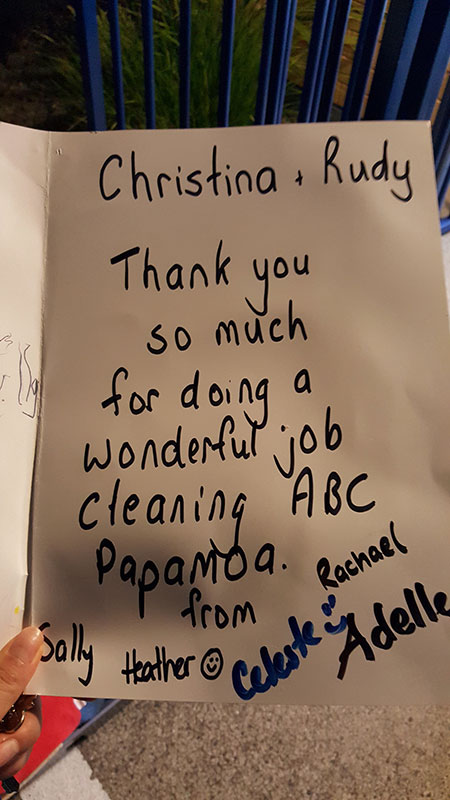 Christina + Rudy
Thank you
so much
for doing a
wonderful job
cleaning ABC
Papamoa.
from
Rachael
Sally Heather ☺ Celeste Adelle